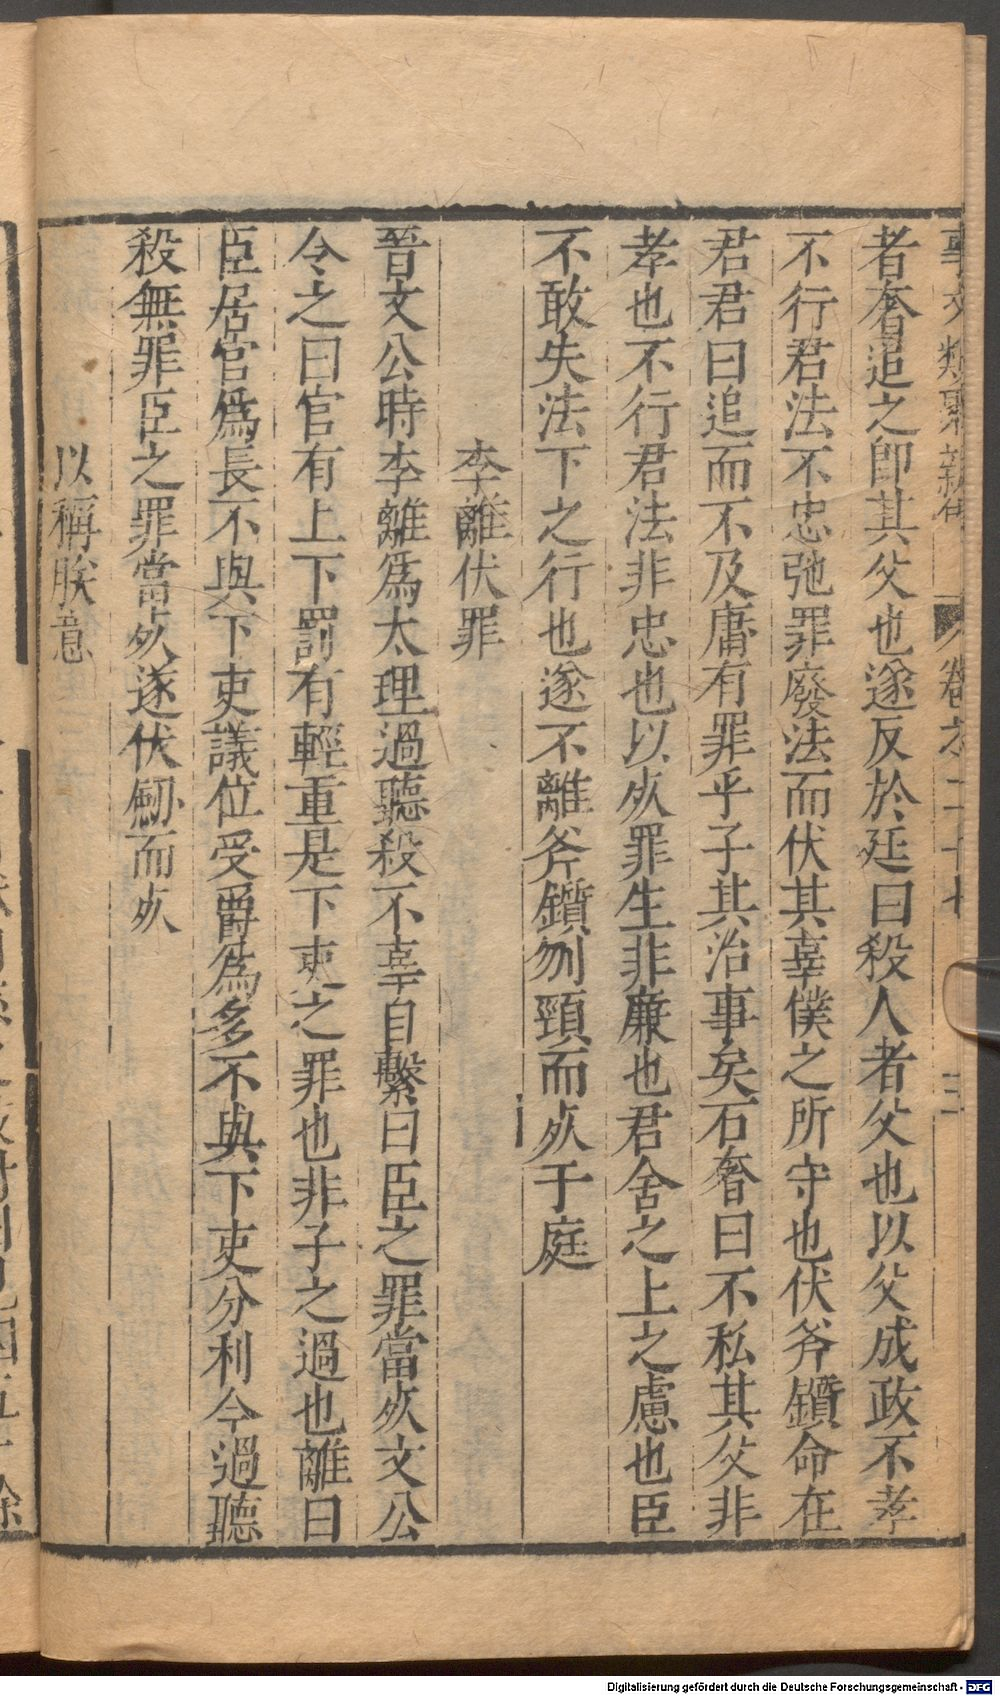 事文類聚新集 卷之二十七 三
者奢追之卽其父也遂反於廷曰殺人者父也以父成政不孝
不行君法不忠弛罪廢法而伏其辜僕之所守也伏斧鑕命在
君君曰追而不及庸有罪乎子其治事矣石奢曰不私其父非
孝也不行君法非忠也以歿罪生非廉也君舍之上之慮也臣
不敢失法下之行也遂不離斧鑕刎頸而歿于庭
李離伏罪
晉文公時李離爲太理過聽殺不辜自繫曰臣之罪當歿文公
令之曰官有上下罰有輕重是下吏之罪也非子之過也離曰
臣居官爲長不與下吏議位受爵爲多不與下吏分利今過聽
殺無罪臣之罪當歿遂伏劒而歿
以稱朕意
Digitalisierung gefördert durch die Deutsche Forschungsgemeinschaft - DFG